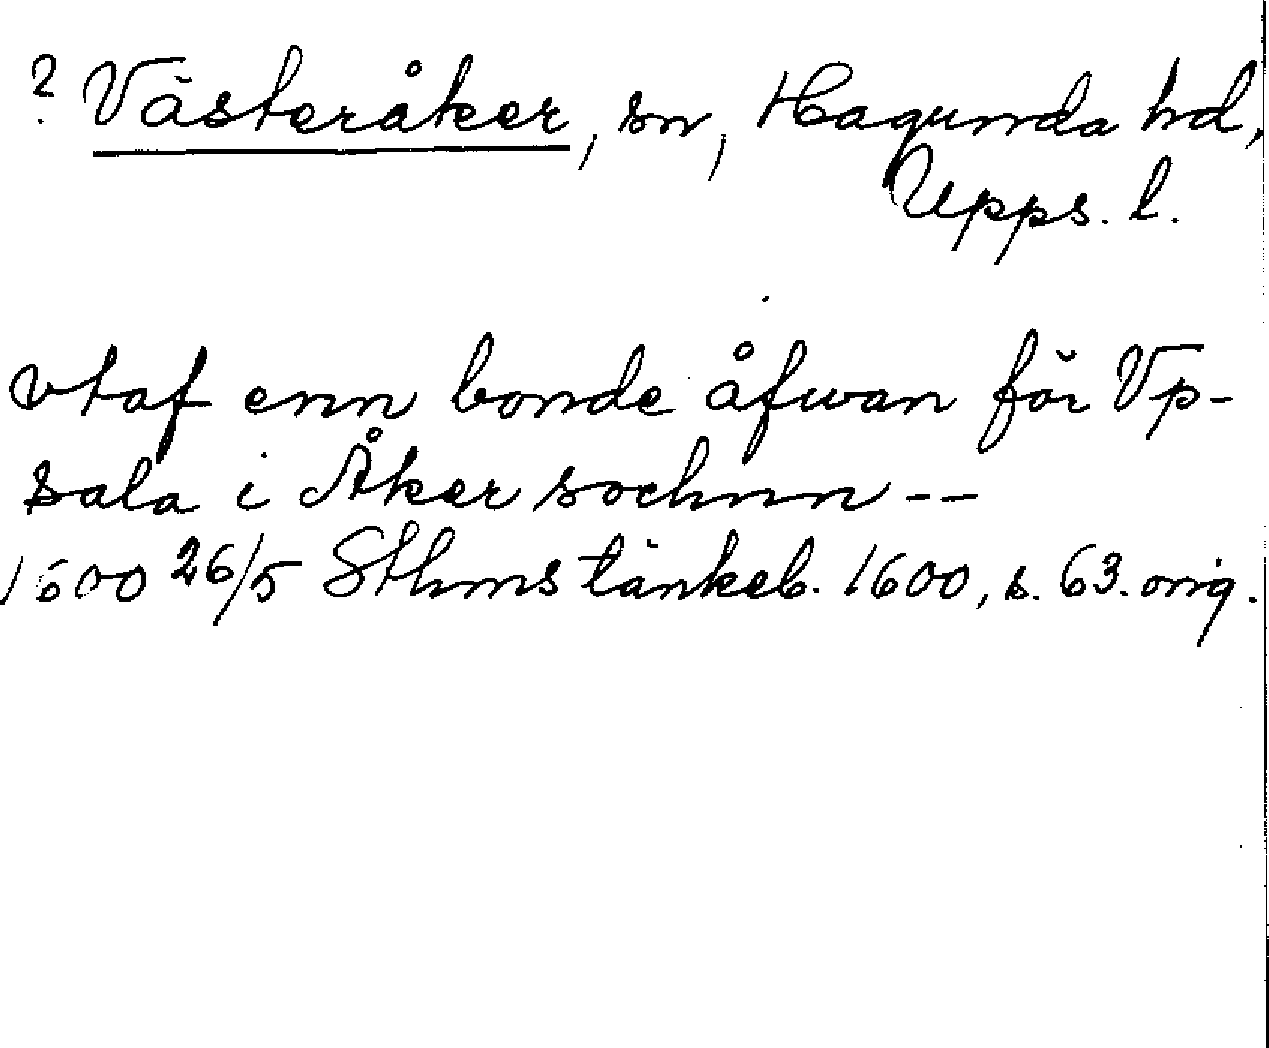 ? Västeråker, sn, Hagunda hd,
Upps. l.
vtaf enn bonde åfwan för Vp-
sala i Åker sochnn --
1600 26/5 Sthms tänkeb. 1600, s. 63. orig.